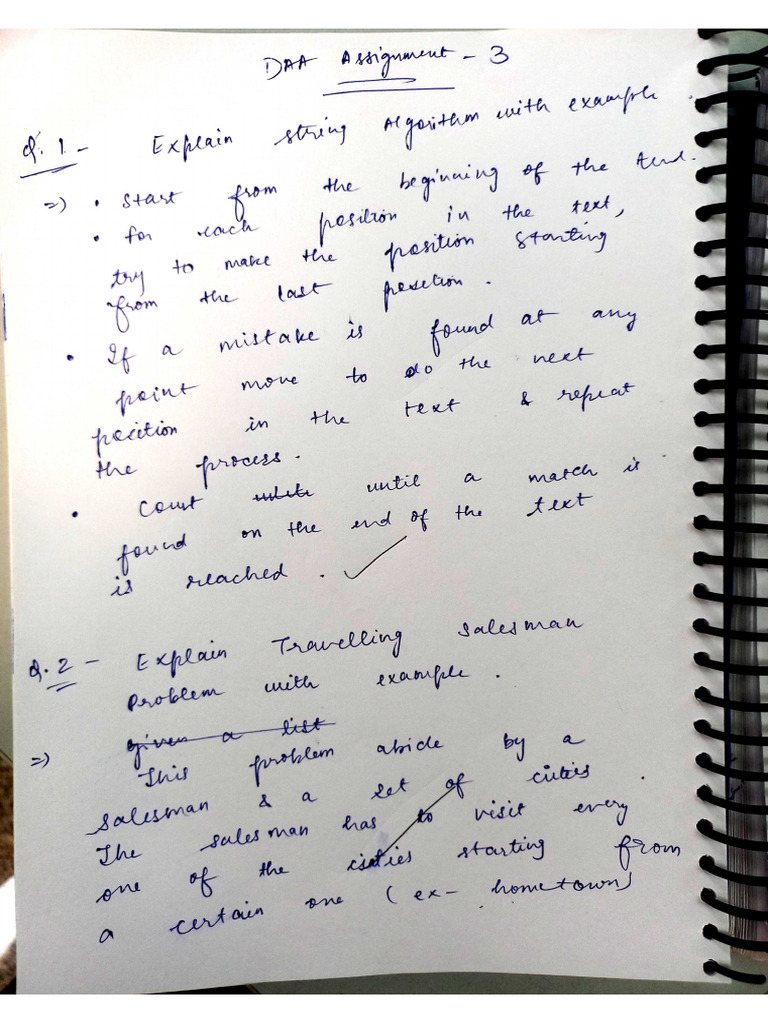 DAA Assignment - 3
Q.1 - Explain string Algorithm with example.
=) • start from the beginning of the text.
• for each position in the text,
try to make the position starting
from the last position.
• If a mistake is found at any
point move to do the next
position in the text & repeat
the process.
• Court until a match is
found on the end of the text
is reached.
Q.2 - Explain Travelling salesman
Problem with example.
=) given a list
This problem abide by a
salesman & a set of cities.
The salesman has to visit every
one of the cities starting from
a certain one (ex- hometown)